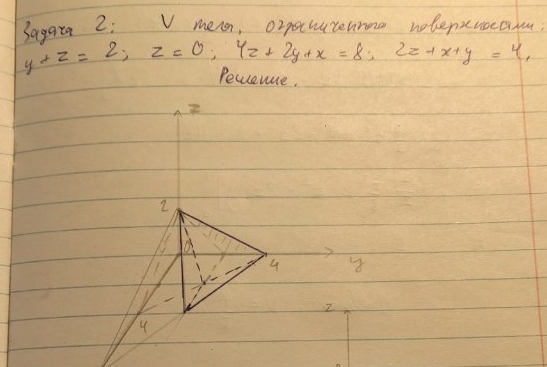 Задача 2: V тела, ограниченного поверхностями:
y + z = 2; z = 0; 4z + 2y + x = 8; 2z + x + y = 4.
Решение.
z
2
0
4
y
4
z